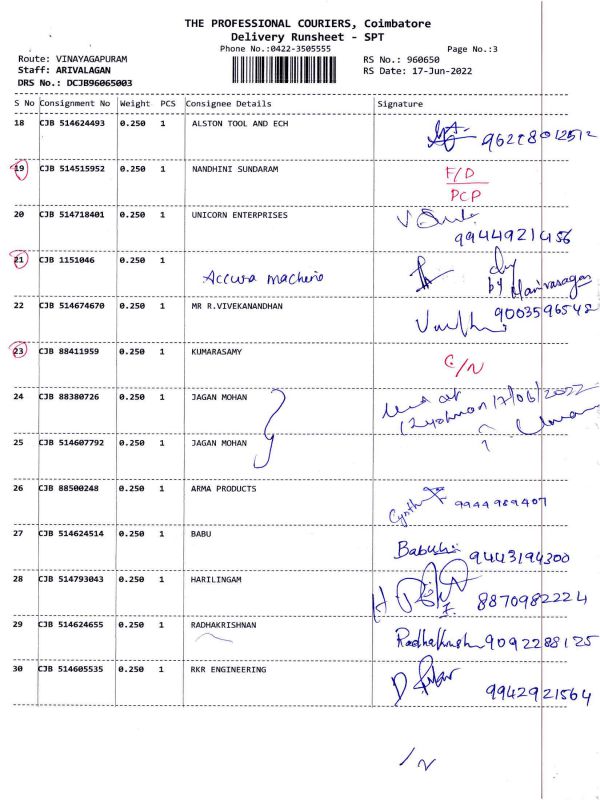 THE PROFESSIONAL COURIERS, Coimbatore
Delivery Runsheet - SPT
Phone No.:0422-3505555
Page No.:3
Route: VINAYAGAPURAM
RS No.: 960650
Staff: ARIVALAGAN
RS Date: 17-Jun-2022
DRS No.: DCJB96065003
S No Consignment No Weight PCS Consignee Details Signature
18 CJB 514624493 0.250 1 ALSTON TOOL AND ECH
19 CJB 514515952 0.250 1 NANDHINI SUNDARAM F/D
PCP
20 CJB 514718401 0.250 1 UNICORN ENTERPRISES
9944921456
21 CJB 1151046 0.250 1
Accura machine
by Manivasagan
22 CJB 514674670 0.250 1 MR R.VIVEKANANDHAN 9003596548
23 CJB 88411959 0.250 1 KUMARASAMY
C/N
24 CJB 88380726 0.250 1 JAGAN MOHAN
17/06/2022
25 CJB 514607792 0.250 1 JAGAN MOHAN
26 CJB 88500248 0.250 1 ARMA PRODUCTS
9944989407
27 CJB 514624514 0.250 1 BABU
9443194300
28 CJB 514793043 0.250 1 HARILINGAM
8870982224
29 CJB 514624655 0.250 1 RADHAKRISHNAN
9092288125
30 CJB 514605535 0.250 1 RKR ENGINEERING
9942921564